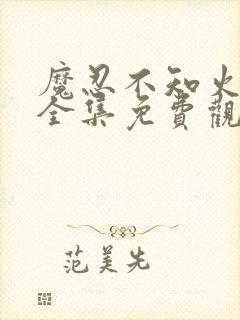 魔忍不知火
全集免費觀
范美先